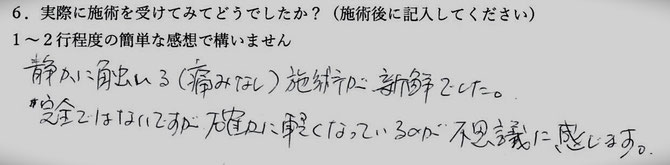 6．実際に施術を受けてみてどうでしたか？（施術後に記入してください）
1～2行程度の簡単な感想で構いません
静かに触れる(痛みなし)施術が新鮮でした。
完全ではないですが確かに軽くなっているのが不思議に感じます。